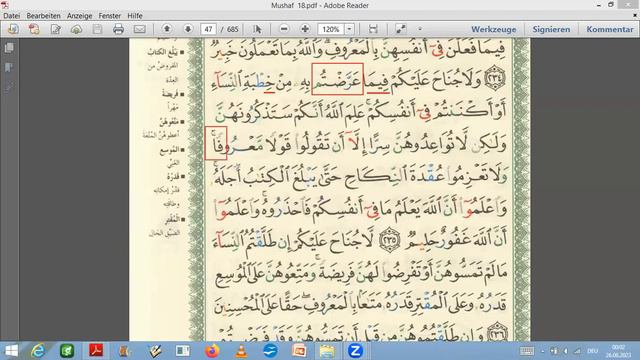 Mushaf 18.pdf - Adobe Reader
Datei Bearbeiten Anzeige Fenster Hilfe
47 / 685 120% Werkzeuge Signieren Kommentar
فِيمَا فَعَلْنَ فِىٓ أَنفُسِهِنَّ بِٱلْمَعْرُوفِۗ وَٱللَّهُ بِمَا تَعْمَلُونَ خَبِيرٌ
٢٣٤ وَلَا جُنَاحَ عَلَيْكُمْ فِيمَا عَرَّضْتُم بِهِۦ مِنْ خِطْبَةِ ٱلنِّسَآءِ
أَوْ أَكْنَنتُمْ فِىٓ أَنفُسِكُمْۚ عَلِمَ ٱللَّهُ أَنَّكُمْ سَتَذْكُرُونَهُنَّ
وَلَٰكِن لَّا تُوَاعِدُوهُنَّ سِرًّا إِلَّآ أَن تَقُولُوا۟ قَوْلًا مَّعْرُوفًاۚ
وَلَا تَعْزِمُوا۟ عُقْدَةَ ٱلنِّكَاحِ حَتَّىٰ يَبْلُغَ ٱلْكِتَٰبُ أَجَلَهُۥۚ
وَٱعْلَمُوٓا۟ أَنَّ ٱللَّهَ يَعْلَمُ مَا فِىٓ أَنفُسِكُمْ فَٱحْذَرُوهُۚ وَٱعْلَمُوٓا۟
أَنَّ ٱللَّهَ غَفُورٌ حَلِيمٌ ٢٣٥ لَّا جُنَاحَ عَلَيْكُمْ إِن طَلَّقْتُمُ ٱلنِّسَآءَ
مَا لَمْ تَمَسُّوهُنَّ أَوْ تَفْرِضُوا۟ لَهُنَّ فَرِيضَةًۚ وَمَتِّعُوهُنَّ عَلَى ٱلْمُوسِعِ
قَدَرُهُۥ وَعَلَى ٱلْمُقْتِرِ قَدَرُهُۥ مَتَٰعًۢا بِٱلْمَعْرُوفِۖ حَقًّا عَلَى ٱلْمُحْسِنِينَ
٢٣٦ وَإِن طَلَّقْتُمُوهُنَّ مِن قَبْلِ أَن تَمَسُّوهُنَّ وَقَدْ فَرَضْتُمْ
يَبْلُغَ الكِتَابُ
المفروض من
العِدّة
فَرِيضَة
مَهْراً
مَتِّعُوهُنَّ
أعطوهنّ المُتعة
المُوسِع
الغَنِيّ
قَدَرُهُ
قَدْر إمكانه
وطاقته
المُقْتِر
الضيّق الحال
DEU 00:02
26.06.2023